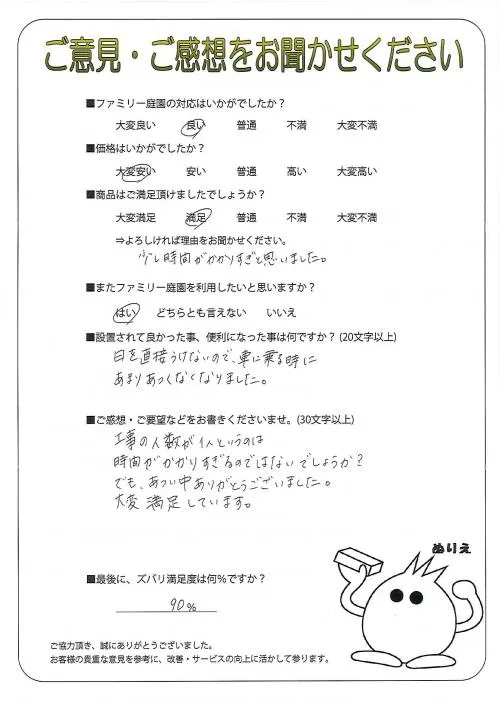 ご意見・ご感想をお聞かせください
■ファミリー庭園の対応はいかがでしたか？
大変良い 良い 普通 不満 大変不満
■価格はいかがでしたか？
大変安い 安い 普通 高い 大変高い
■商品はご満足頂けましたでしょうか？
大変満足 満足 普通 不満 大変不満
⇒よろしければ理由をお聞かせください。
少し時間がかかりすぎと思いました。
■またファミリー庭園を利用したいと思いますか？
はい どちらとも言えない いいえ
■設置されて良かった事、便利になった事は何ですか？(20文字以上)
日を直接うけないので、車に乗る時に
あまりあつくなくなりました。
■ご感想・ご要望などをお書きくださいませ。(30文字以上)
工事の人数が1人というのは
時間がかかりすぎるのではないでしょうか？
でも、あつい中ありがとうございました。
大変満足しています。
ぬりえ
■最後に、ズバリ満足度は何％ですか？
90％
ご協力頂き、誠にありがとうございました。
お客様の貴重な意見を参考に、改善・サービスの向上に活かして参ります。